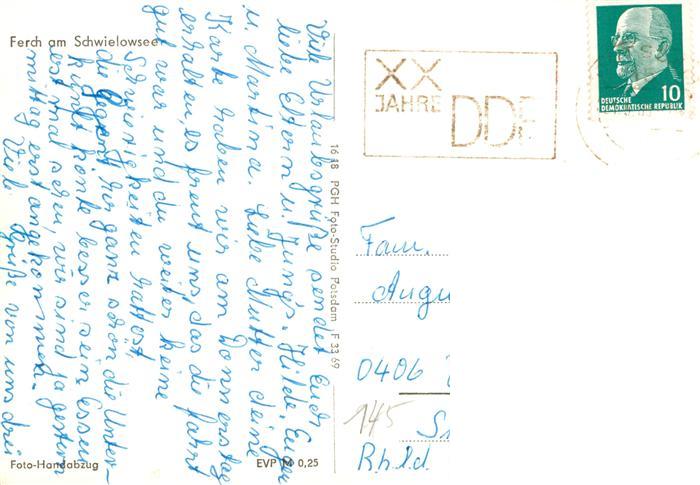 Ferch am Schwielowsee
Viele Urlaubsgrüße sendet Euch
liebe Eltern u. Jung's. Hilde, Eugen
u. Martina. Liebe Mutter deine
Karte haben wir am Donnerstag
erhalten es freut uns das die Fahrt
gut war und du weiter keine
Schwierigkeiten hattest.
die Gegent hier ganz schön die Unter-
kunft könte besser sein Essen
erstmal sehen, wir sind ja gestern
mittag erst angekommen.
Viele
Grüße von uns drei
Foto-Handabzug
EVP M 0,25
16 18 PGH Foto-Studio Potsdam F 33 69
XX
JAHRE DDR
10
DEUTSCHE
DEMOKRATISCHE REPUBLIK
Fam.
Augu
0406
145
Rhld.